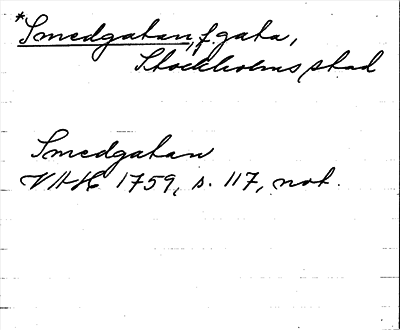 *Smedgatan, f. gata,
Stockholms stad
Smedgatan
VAH 1759, s. 117, not.